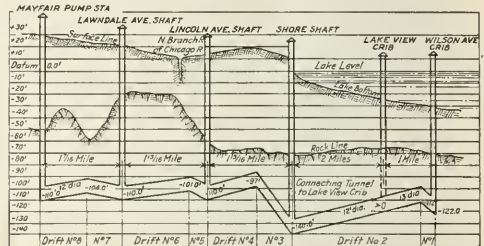 MAYFAIR PUMP STA
LAWNDALE AVE. SHAFT
LINCOLN AVE. SHAFT
SHORE SHAFT
LAKE VIEW CRIB
WILSON AVE CRIB
+30'
+20'
+10'
Datum 0.0'
-10'
-20'
-30'
-40'
-50'
-60'
-70'
-80'
-90'
-100'
-110'
-120'
-130'
-140'
Surface Line
N. Branch of Chicago R.
Lake Level
Lake Bottom
Rock Line
1 7/16 Mile
1 13/16 Mile
1 3/16 Mile
2 Miles
1 Mile
Connecting Tunnel to Lake View Crib
-110.0'
12' dia.
-104.0'
-110.0'
-101.0'
-110.0'
-97'
-140.0'
12' dia.
13' dia
-122.0
Drift Nº8
Nº7
Drift Nº6
Nº5
Drift Nº4
Nº3
Drift No 2
Nº1